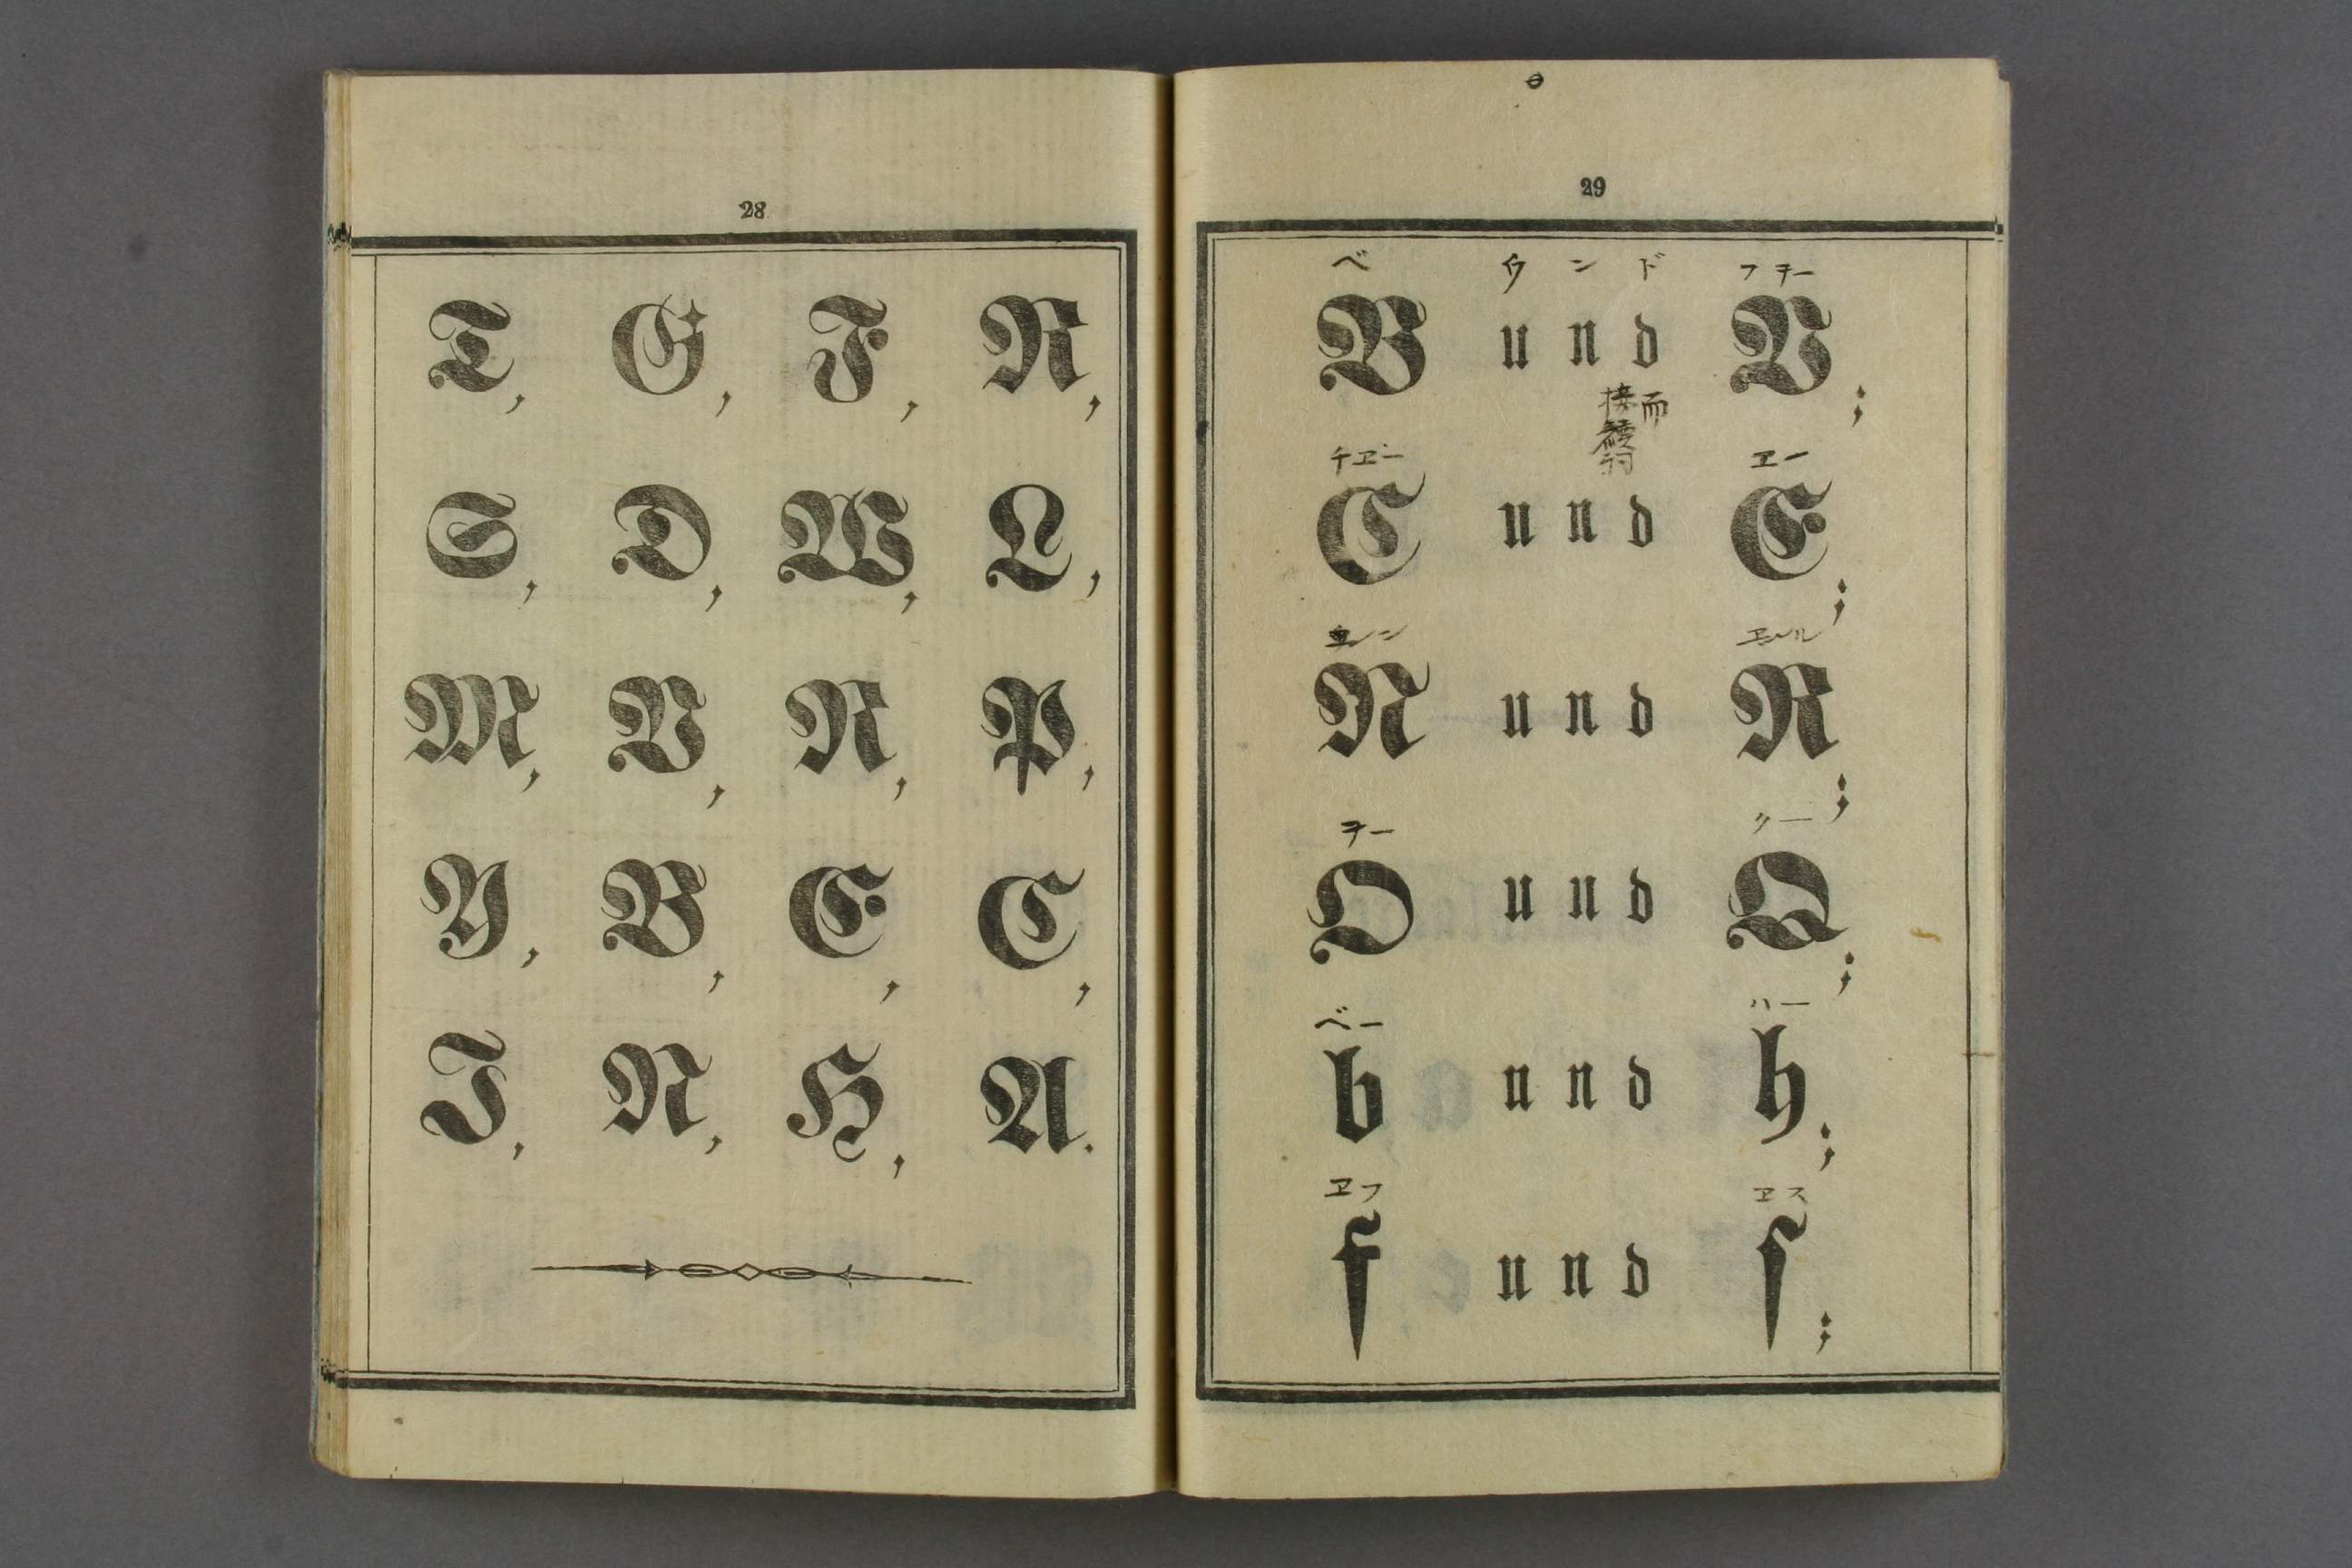 28
T, G, F, R,
S, D, W, L,
M, V, K, P,
Y, B, E, C,
J, N, H, A.
29
ベ ウンド フヲー
B und V;
而
接續詞
チヱー ヱー
C und E;
ヱンン ヱルル
N und R;
ヲー クー
O und Q;
ベー ハー
b und h;
ヱフ ヱス
f und ſ;